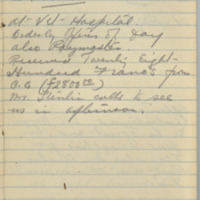 at Vet Hospital.
Orderly Officer of day
also Paymaster.
Received Twenty Eight-
Hundred Francs from
O.C (f2800 00)
Mr. calls to see
us in afternoon.